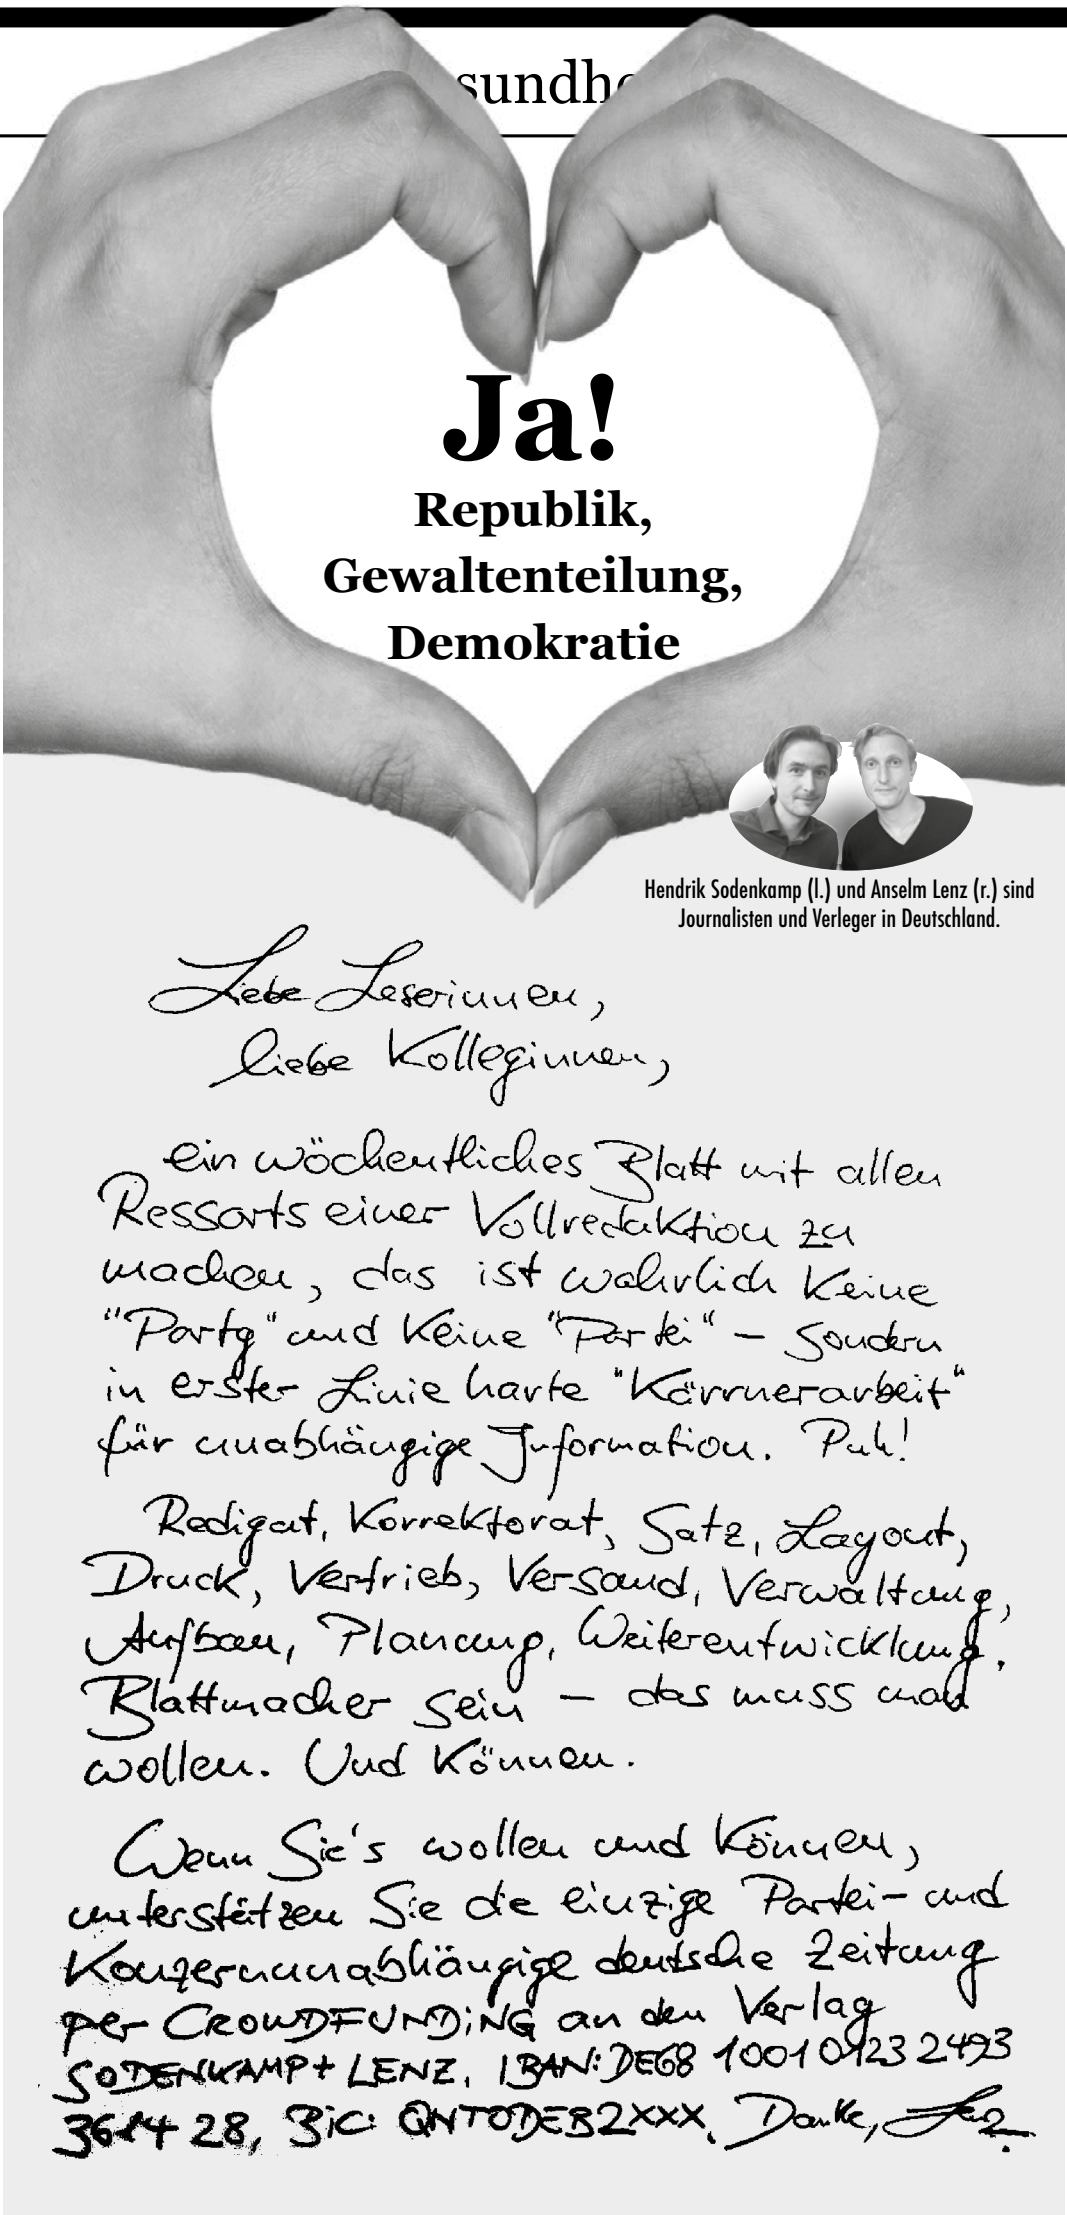 sundhe
Ja!
Republik,
Gewaltenteilung,
Demokratie
Hendrik Sodenkamp (l.) und Anselm Lenz (r.) sind
Journalisten und Verleger in Deutschland.
Liebe Leserinnen,
liebe Kolleginnen,
ein wöchentliches Blatt mit allen
Ressorts einer Vollredaktion zu
machen, das ist wahrlich keine
"Party" und keine "Partei" – sondern
in erster Linie harte "Kärrnerarbeit"
für unabhängige Information. Puh!
Redigat, Korrektorat, Satz, Layout,
Druck, Vertrieb, Versand, Verwaltung,
Aufbau, Planung, Weiterentwicklung.
Blattmacher sein – das muss man
wollen. Und können.
Wenn Sie's wollen und können,
unterstützen Sie die einzige Partei- und
Konzernunabhängige deutsche Zeitung
per CROWDFUNDING an den Verlag
SODENKAMP + LENZ, IBAN: DE68 1001 0123 2493
3614 28, BIC: QNTODEB2XXX. Danke, Lenz